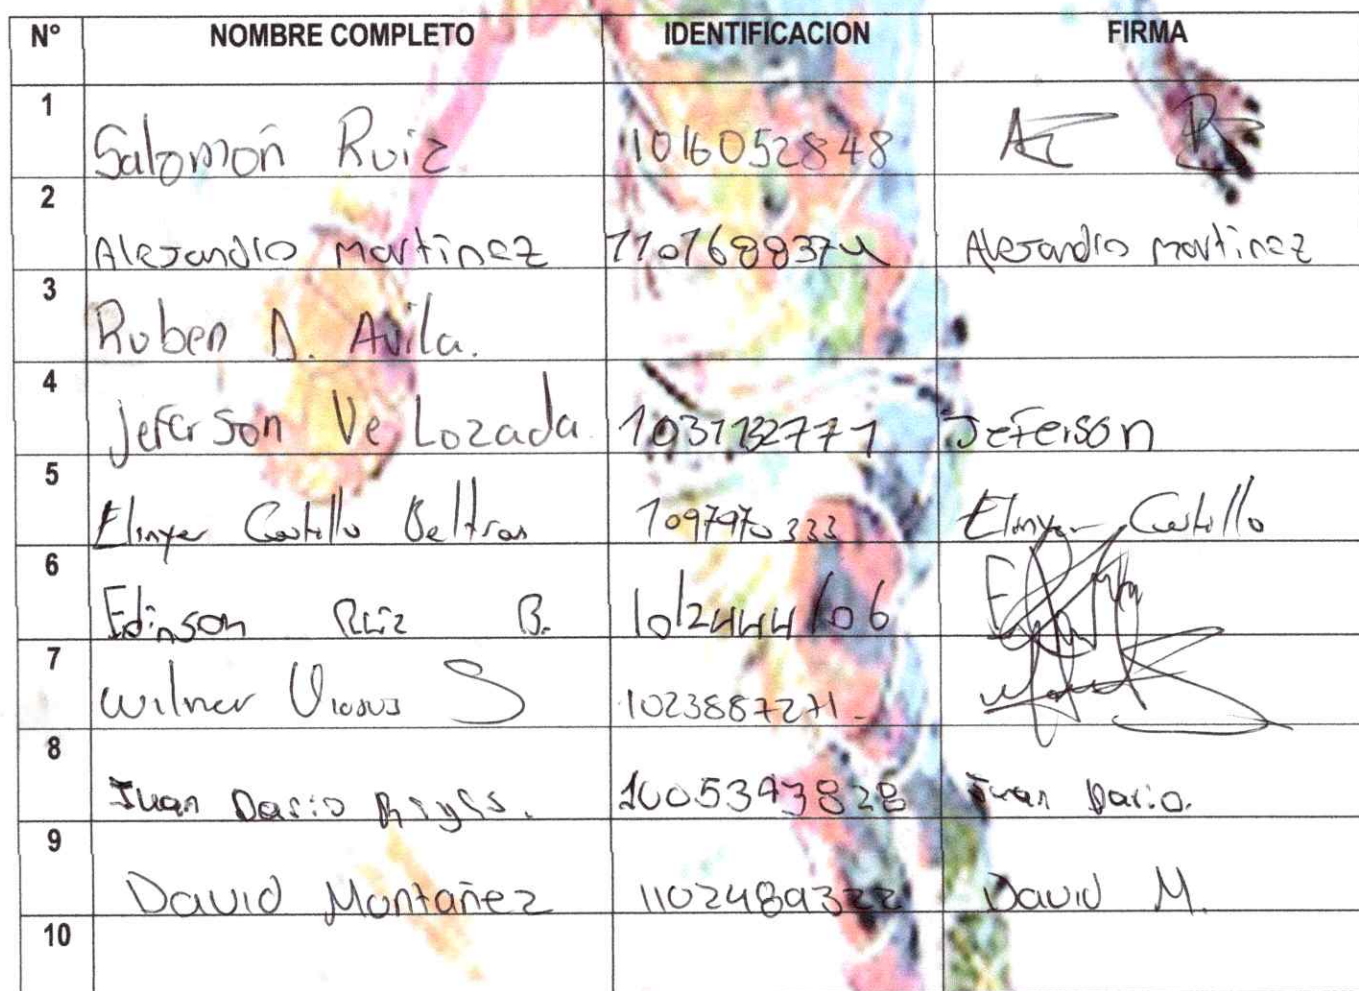 N° NOMBRE COMPLETO IDENTIFICACION FIRMA
1 Salomón Ruiz 1016052848
2 Alejandro martinez 1101688374 Alejandro martinez
3 Ruben D. Avila.
4 Jeferson Ve Lozada 1031132771 Jeferson
5 Elinyer Castillo Beltran 1097970333 Elinyer Castillo
6 Edinson Ruiz B. 1012444106
7 Wilner S 1023887271
8 Juan Dario 1005393828 Juan Dario.
9 David Montañez 1102489322 David M.
10